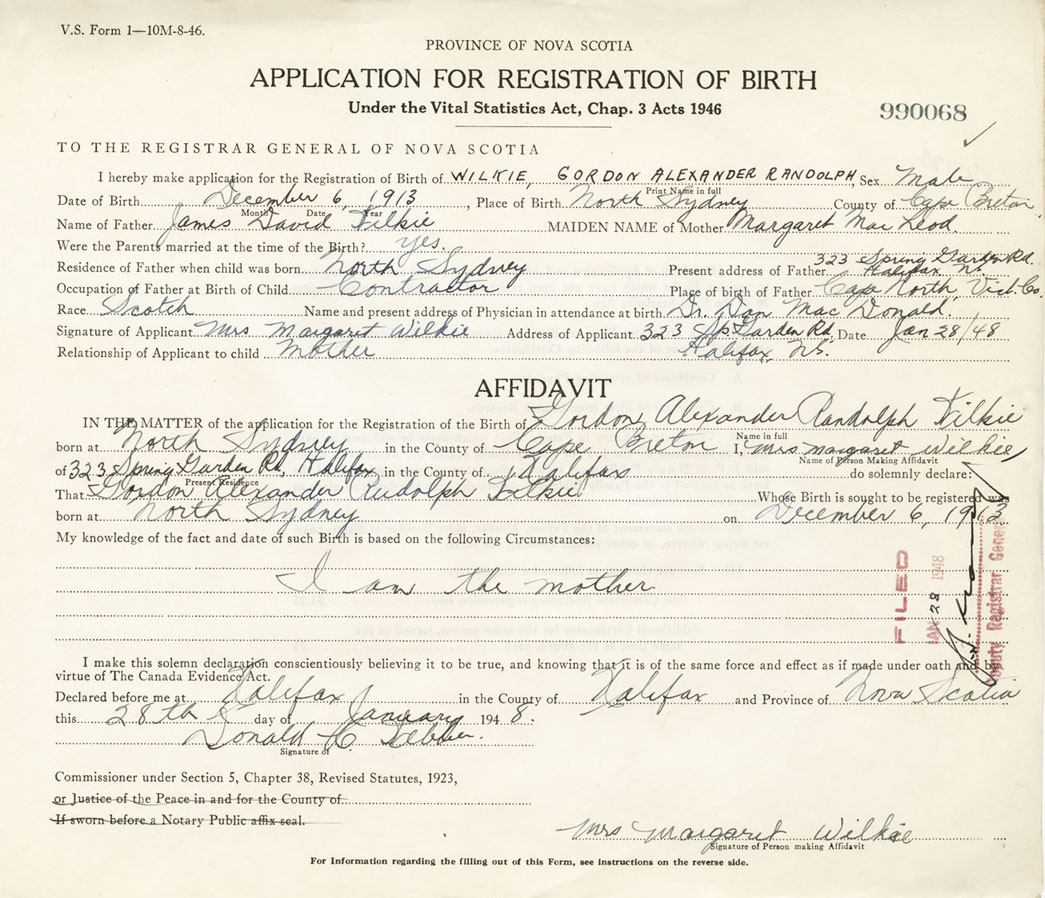 V.S. Form 1—10M-8-46.
PROVINCE OF NOVA SCOTIA
APPLICATION FOR REGISTRATION OF BIRTH
Under the Vital Statistics Act, Chap. 3 Acts 1946
990068
TO THE REGISTRAR GENERAL OF NOVA SCOTIA
I hereby make application for the Registration of Birth of WILKIE, GORDON ALEXANDER RANDOLPH, Sex Male
Print Name in full
Date of Birth December 6, 1913, Place of Birth North Sydney County of Cape Breton
Month Date Year
Name of Father James David Wilkie MAIDEN NAME of Mother Margaret MacLeod.
Were the Parents married at the time of the Birth? yes.
Residence of Father when child was born North Sydney Present address of Father 323 Spring Garden Rd. Halifax N.S.
Occupation of Father at Birth of Child Contractor Place of birth of Father Cape North, Vict. Co.
Race Scotch Name and present address of Physician in attendance at birth Dr. Dan MacDonald.
Signature of Applicant Mrs Margaret Wilkie Address of Applicant 323 Sp Garden Rd, Date Jan 28/48
Relationship of Applicant to child Mother Halifax, N.S.
AFFIDAVIT
IN THE MATTER of the application for the Registration of the Birth of Gordon Alexander Randolph Wilkie
Name in full
born at North Sydney in the County of Cape Breton I, Mrs Margaret Wilkie
Name of Person Making Affidavit
of 323 Spring Garden Rd, Halifax in the County of Halifax do solemnly declare:
Present Residence
That Gordon Alexander Rudolph Wilkie Whose Birth is sought to be registered was
born at North Sydney on December 6, 1913
My knowledge of the fact and date of such Birth is based on the following Circumstances:
I am the mother
FILED
JAN 28 1948
Deputy Registrar General
I make this solemn declaration conscientiously believing it to be true, and knowing that it is of the same force and effect as if made under oath and by
virtue of The Canada Evidence Act.
Declared before me at Halifax in the County of Halifax and Province of Nova Scotia
this 28th day of January 1948.
Donald
Signature of
Commissioner under Section 5, Chapter 38, Revised Statutes, 1923,
or Justice of the Peace in and for the County of
If sworn before a Notary Public affix seal.
Mrs Margaret Wilkie
Signature of Person making Affidavit
For Information regarding the filling out of this Form, see instructions on the reverse side.